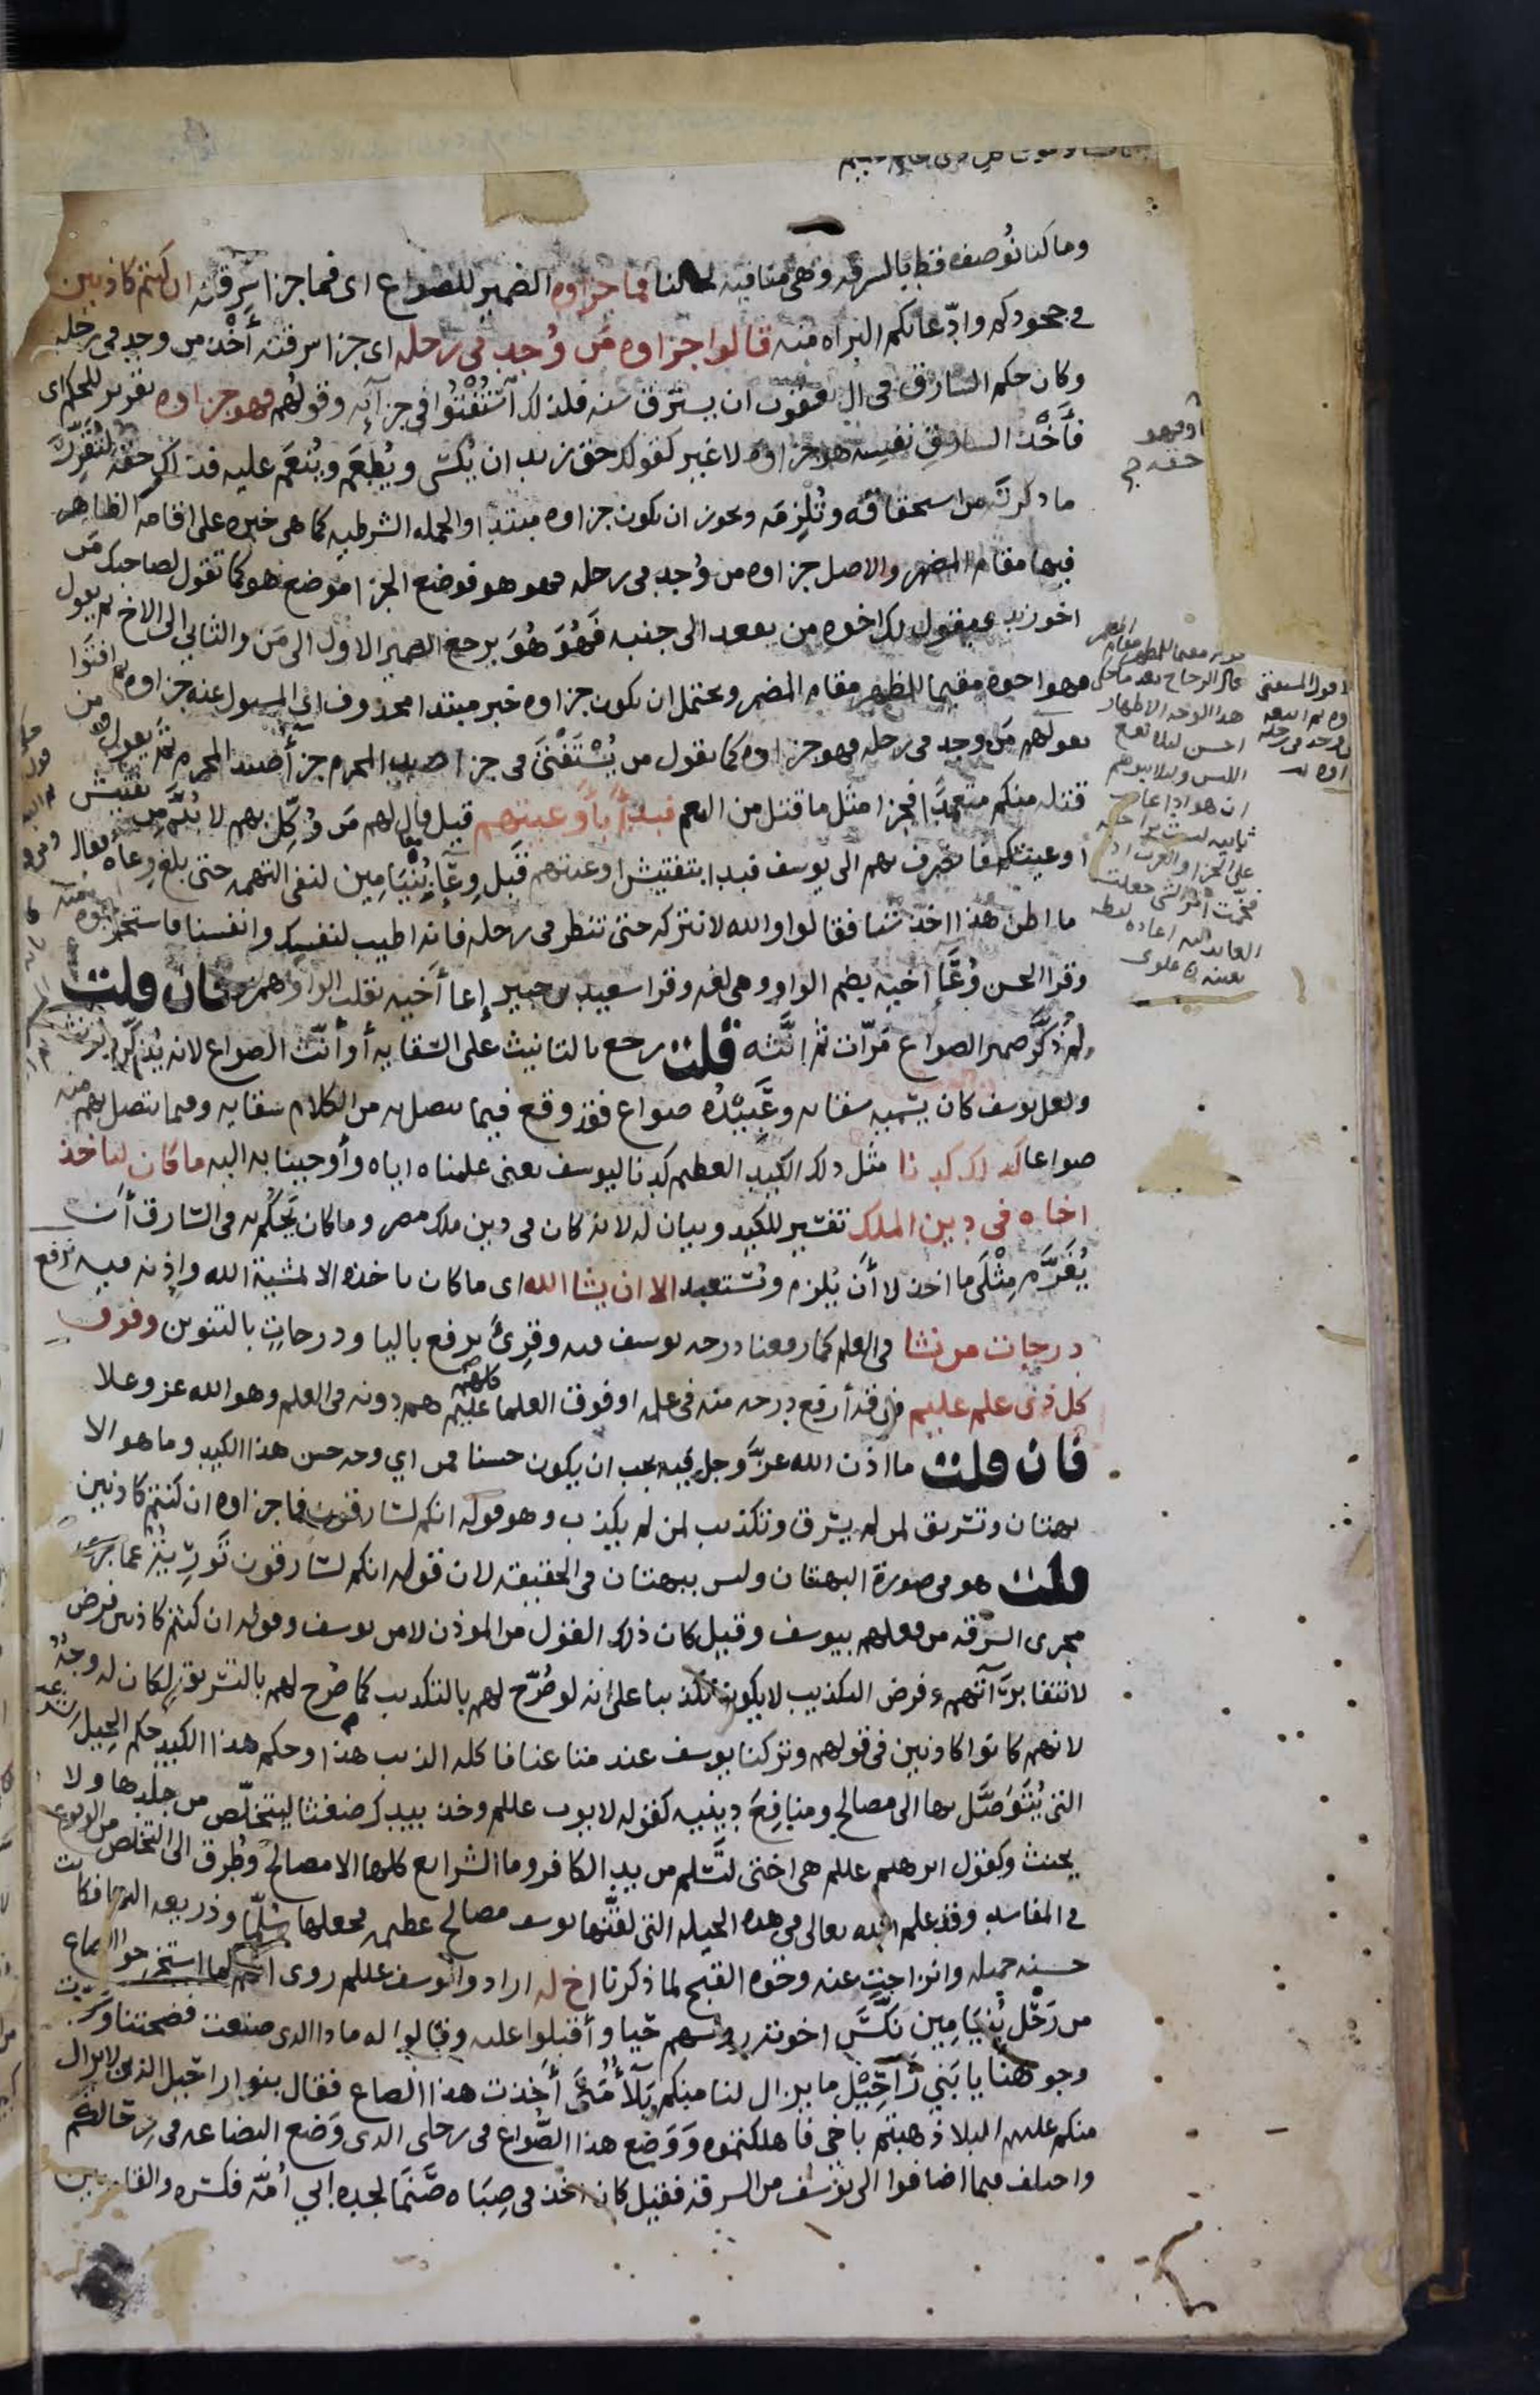 وما كنا نوصف قط بالسرقه وهى منافيه لحالنا فما جزاوه الضمير للصواع اى فما جزا سرقته ان كنتم كاذبين
فى جحودكم وادّعائكم البراه منه قالوا جزاوه مَن وُجد فى رحله اى جزا سرقته أَخْذ من وجد فى رحله
وكان حكم السارق فى ال يعقوب ان يسترق سنه فلذلك اسْتُفْتُوا فى جزآيه وقولهم فهو جزاوه تقرير للحكم اى
فأَخْذ السارق نفسه هو جزاوه لا غير كقولك حق زيد ان يُكسى ويُطعَم ويُنعَم عليه فذلك حقه لتقرر
ما ذكرته من استحقاقه وتُلزِمه ويجوز ان يكون جزاوه مبتدا والجمله الشرطيه كما هى خبره على اقامه الظاهر
فيها مقام المضمر والاصل جزاوه من وُجد فى رحله فهو هو فوضع الجزا موضع هو كما تقول لصاحبك مَن
اخو زيد فيقول لك اخوه من يقعد الى جنبه فَهُوَ هُوَ يرجع الضمير الاول الى مَن والثانى الى الاخ ثم يقول
فهو اخوه مقيما للمظهر مقام المضمر ويحتمل ان يكون جزاوه خبر مبتدا محذوف اى المسول عنه جزاوه ثم افتَوا
بقولهم مَن وجد فى رحله فهو جزاوه كما يقول من يُسْتَفْتَى فى جزا صيد المحرم جزآ صيد المحرم ثم يقول ومن
قتله منكم متعمدا فجزا مثل ما قتل من النعم فبدأ بأوعيتهم قيل قال لهم مَن وُكِّل بهم لا بُدَّ من تفتيش
اوعيتكم فانصرف بهم الى يوسف فبدا بتفتيش اوعيتهم قبل وِعآ بُنْيَامِين لنفى التهمه حتى بلغ وعاه فقال
ما اظن هذا اخذ شيا فقالوا والله لا نتركه حتى تنظر فى رحله فانه اطيب لنفسك وانفسنا فاستخرجوه منه
وقرا الحسن وُعآ اخيه بضم الواو وهى لغه وقرا سعيد بن جبير إعا أَخيه بقلب الواو همزه فان قلت
لم ذَكَّر ضمير الصواع مَرّات ثم انَّثه قلت رجع بالتانيث على السقايه أو أنّث الصواع لانه يُذكّر ويونث
ولعل يوسف كان يسميه سقايه وعَبيدُه صواع فقد وقع فيما يتصل به من الكلام سقايه وفيما يتصل بهم منه
صواعا كذلك كدنا مثل ذلك الكيد العظيم كدنا ليوسف يعنى علمناه اياه وأوحينا به اليه ما كان لياخذ
اخاه فى دين الملك تفسير للكيد وبيان له لانه كان فى دين ملك مصر وما كان يَحكُم به فى السارق أن
يُغَرَّم مِثْلَى ما اخذ لا أن يُلزم ويُستعبد الا ان يشا الله اى ما كان ياخذه الا بمشيية الله وإذنه فيه نرفع
درجات من نشا فى العلم كما رفعنا درجه يوسف فيه وقرئ يرفع باليا ودرجاتٍ بالتنوين وفوق
كل ذى علم عليم فوقه أرفع درجه منه فى علمه او فوق العلما كلهم عليم هم دونه فى العلم وهو الله عز وعلا
فان قلت ما اذن الله عزّ وجل فيه يجب ان يكون حسنا فمن اي وجه حسن هذا الكيد وما هو الا
بهتان وتسريق لمن لم يسرق وتكذيب لمن لم يكذب وهو قوله انكم لسارقون فما جزاوه ان كنتم كاذبين
قلت هو فى صورة البهتان وليس ببهتان فى الحقيقه لان قوله انكم لسارقون تَورِيَةٌ عما جرى
مجرى السرقه من فعلهم بيوسف وقيل كان ذلك القول من الموذن لا من يوسف وقوله ان كنتم كاذبين فرض
لانتفا برَآتهم وفرض التكذيب لا يكون تكذيبا على انه لو صُرّح لهم بالتكذيب كما صُرح لهم بالتسريق لكان له وجهٌ
لانهم كانوا كاذبين فى قولهم وتركنا يوسف عند متاعنا فاكله الذيب هذا وحكم هذا الكيد حكم الحيل الشرعيه
التى يُتَوَصَّل بها الى مصالح ومنافِعَ دينيه كقوله لايوب عللم وخذ بيدك ضغثا ليتخلّص من جلدها ولا
يحنث وكقول ابرهيم عللم هى اختى لتَسلم من يد الكافر وما الشرايع كلها الا مصالح وطُرق الى التخلص من الوقوع
فى المفاسد وقد علم الله تعالى فى هذه الحيله التى لقّنها يوسف مصالح عظيمه فجعلها سُلّما وذريعه اليها فكانت
حسنه جميله وانزاحت عنه وجوه القبح لما ذكرنا اخ له ارادوا يوسف عللم روى انهم لما استخرجوا الصاع
من رَحْل بُنيَامِين نَكَّسَ اخوته رووسهم حَيا وأقبلوا عليه وقالوا له ما ذا الذى صنعت فضحتنا وسودت
وجوهنا يا بَنِي رَاحِيْل ما يزال لنا منكم بَلَآءٌ مَتَى أخذت هذا الصاع فقال بنو راحيل الذين لا يزال
منكم عليهم البلا ذهبتم باخى فاهلكتموه وَوَضع هذا الصُّواع فى رحلى الذى وَضع البضاعه فى رحالكم
واختلف فيما اضافوا الى يوسف من السرقه فقيل كان اخذ فى صِبَاه صَنَمًا لجده ابي أُمّه فكسّره والقاه بين
او فهو
حقه
قال الزجاج
هذا الوجه الاظهار
احسن ليلا يقع
اللبس وليلا يتوهم
العايد اليه اعاده لفظه
بعينه علوى